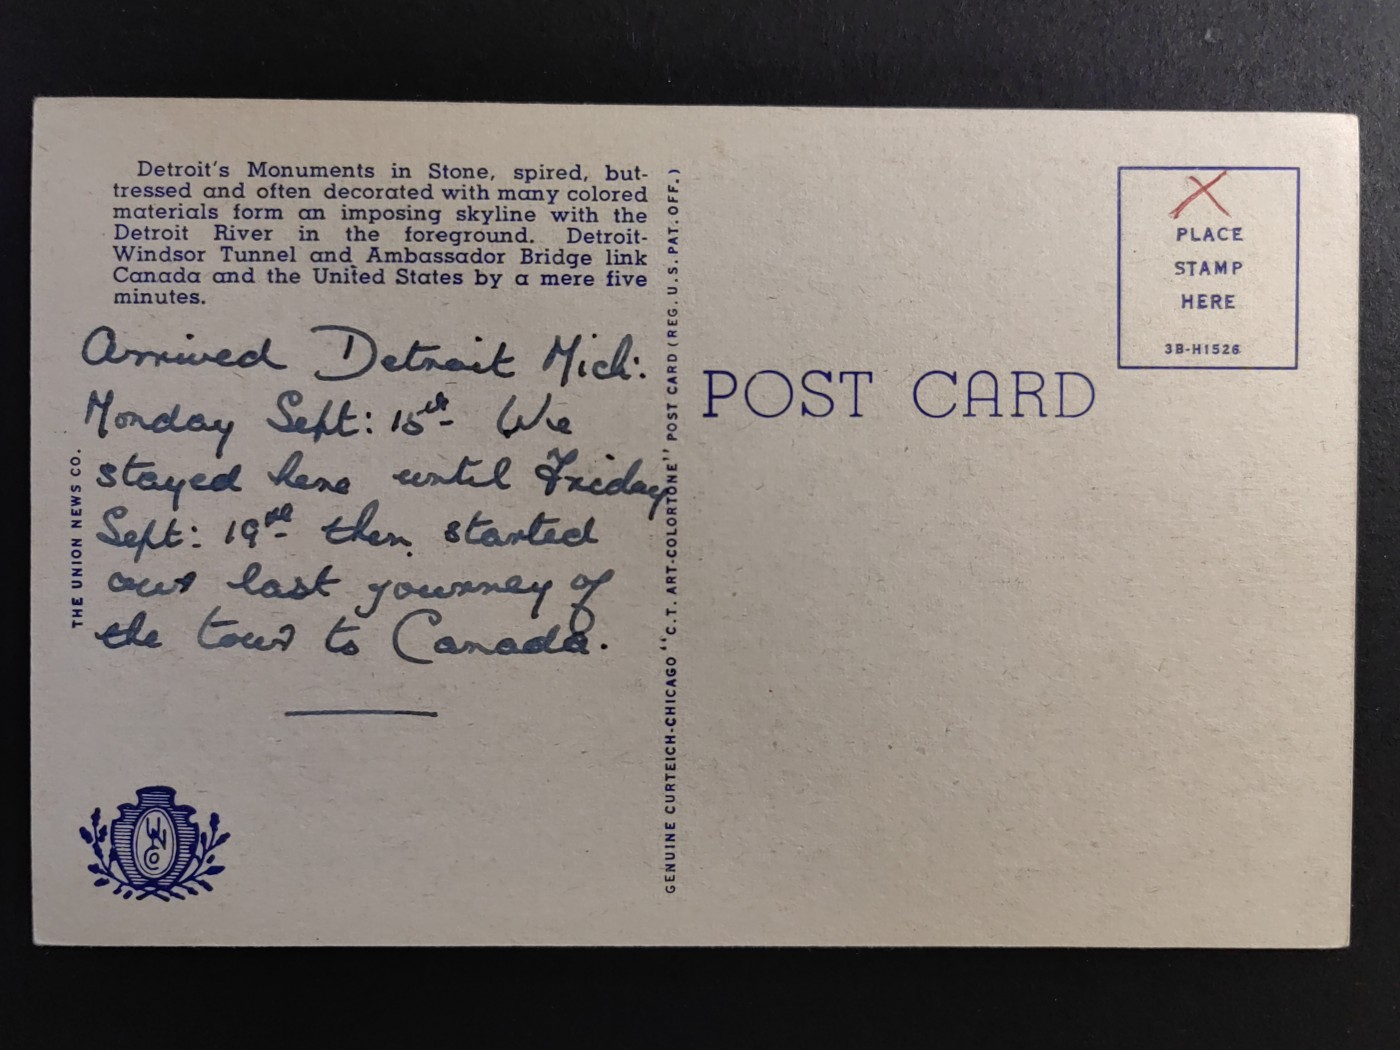 Detroit's Monuments in Stone, spired, but-
tressed and often decorated with many colored
materials form an imposing skyline with the
Detroit River in the foreground. Detroit-
Windsor Tunnel and Ambassador Bridge link
Canada and the United States by a mere five
minutes.
Arrived Detroit Mich:
Monday Sept: 15th- We
stayed here until Friday
Sept: 19th- then started
our last journey of
the tour to Canada.
THE UNION NEWS CO.
UNCo
GENUINE CURTEICH-CHICAGO "C.T. ART-COLORTONE" POST CARD (REG. U.S. PAT. OFF.)
POST CARD
X
PLACE
STAMP
HERE
3B-H1526